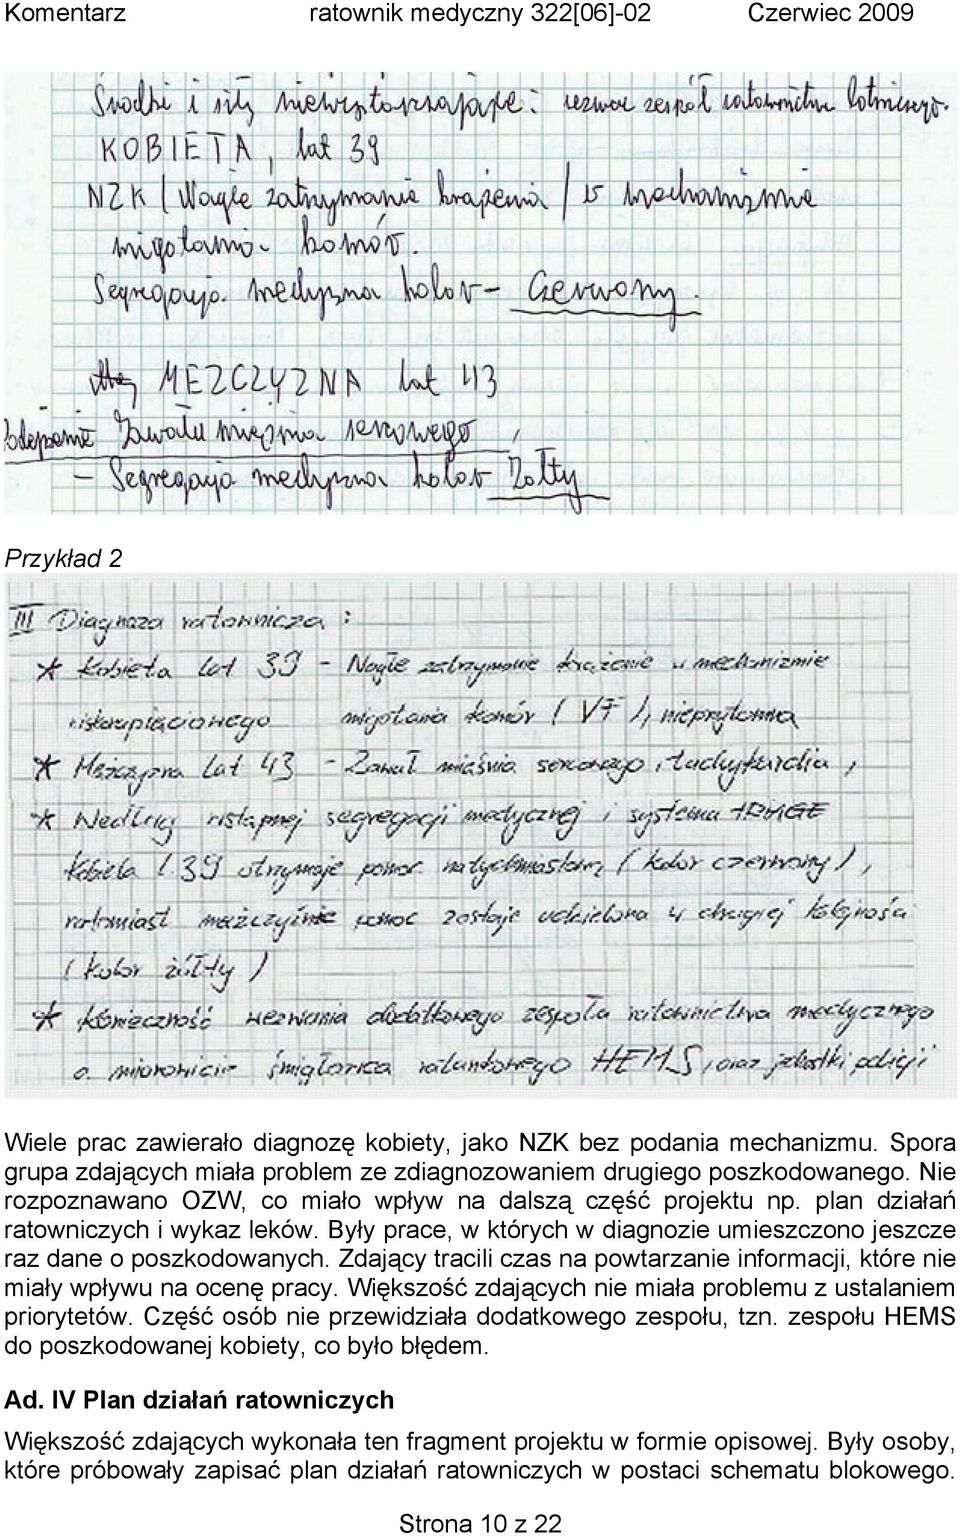 Komentarz ratownik medyczny 322[06]-02 Czerwiec 2009
Środki i siły niewystarczające: wezwać zespół ratownictwa lotniczego.
KOBIETA, lat 39
NZK / Nagłe zatrzymanie krążenia / w mechanizmie
migotania komór.
Segregacja medyczna kolor - Czerwony.
MEZCZYZNA lat 43
Podejrzenie Zawału mięśnia sercowego,
- Segregacja medyczna kolor Żółty
Przykład 2
III Diagnoza ratownicza:
* Kobieta lat 39 - Nagłe zatrzymanie krążenia w mechanizmie
migotania komór (VF), nieprzytomna
* Mężczyzna lat 43 - Zawał mięśnia sercowego, tachykardia,
* Według wstępnej segregacji medycznej i systemu TRIAGE
kobieta l. 39 otrzymuje pomoc natychmiastową (kolor czerwony),
natomiast mężczyźnie pomoc zostaje udzielona w drugiej kolejności
(kolor żółty)
* Konieczność wezwania dodatkowego zespołu ratownictwa medycznego
a mianowicie śmigłowca ratunkowego HEMS, oraz jednostki policji
Wiele prac zawierało diagnozę kobiety, jako NZK bez podania mechanizmu. Spora
grupa zdających miała problem ze zdiagnozowaniem drugiego poszkodowanego. Nie
rozpoznawano OZW, co miało wpływ na dalszą część projektu np. plan działań
ratowniczych i wykaz leków. Były prace, w których w diagnozie umieszczono jeszcze
raz dane o poszkodowanych. Zdający tracili czas na powtarzanie informacji, które nie
miały wpływu na ocenę pracy. Większość zdających nie miała problemu z ustalaniem
priorytetów. Część osób nie przewidziała dodatkowego zespołu, tzn. zespołu HEMS
do poszkodowanej kobiety, co było błędem.
Ad. IV Plan działań ratowniczych
Większość zdających wykonała ten fragment projektu w formie opisowej. Były osoby,
które próbowały zapisać plan działań ratowniczych w postaci schematu blokowego.
Strona 10 z 22